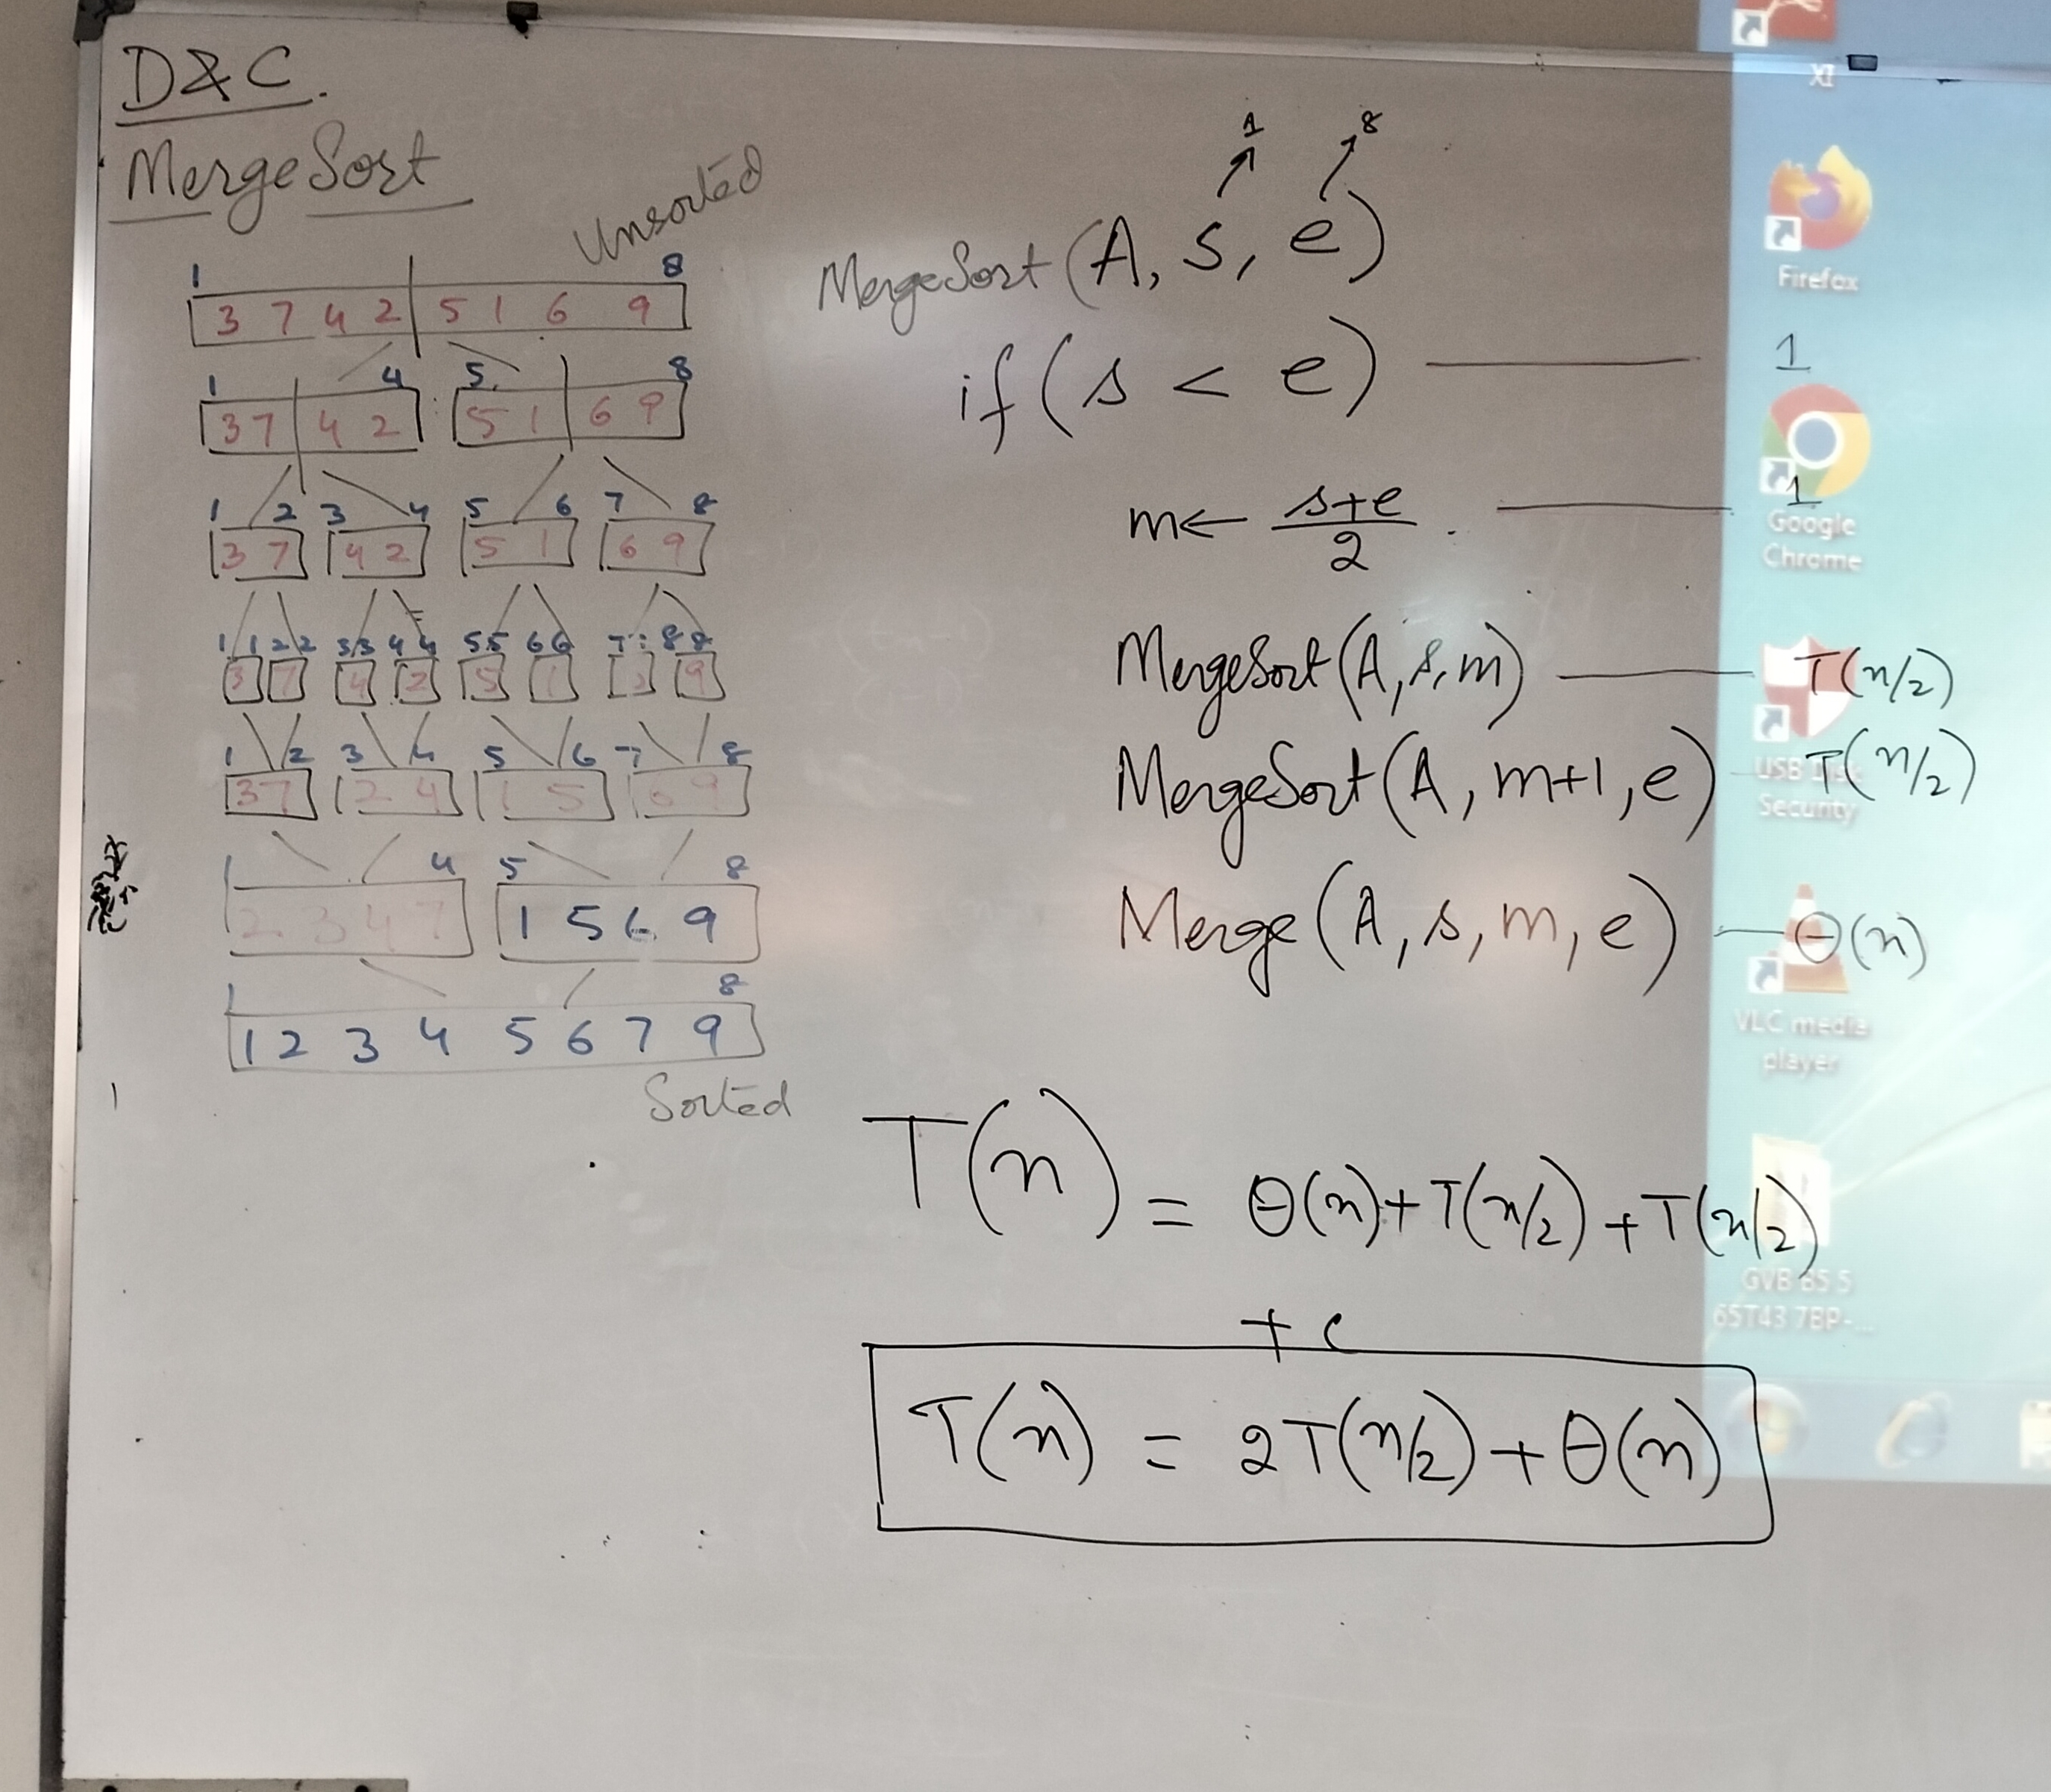 D&C.
MergeSort
Unsorted
1 8
3 7 4 2 5 1 6 9
1 4 5 8
3 7 4 2 5 1 6 9
1 2 3 4 5 6 7 8
3 7 4 2 5 1 6 9
1 1 2 2 3 3 4 4 5 5 6 6 7 8 8
3 7 4 2 5 1 9
1 2 3 4 5 6 7 8
3 7 2 4 1 5 6 9
1 4 5 8
2 3 4 7 1 5 6 9
1 8
1 2 3 4 5 6 7 9
Sorted
1 8
MergeSort (A, s, e)
if (s < e) 1
m← s+e/2 . 1
MergeSort (A, s, m) T(n/2)
MergeSort (A, m+1, e) T(n/2)
Merge (A, s, m, e) θ(n)
T(n) = θ(n)+T(n/2)+T(n/2)
+ c
T(n) = 2T(n/2)+θ(n)
XI
Firefox
Google
Chrome
USB Disk
Security
VLC media
player
GVB 85 5
65T43 7BP-...